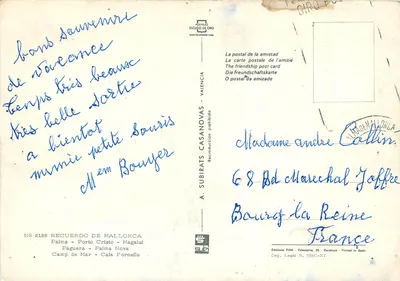 bons souvenirs
de vacance
temps très beaux
très belle sortie
a bientot
mimie petite souris
Mem Bouyer
516 2159 RECUERDO DE MALLORCA
Palma - Porto Cristo - Magaluf
Paguera - Palma Nova
Camp de Mar - Cala Fornells
A. SUBIRATS CASANOVAS - VALENCIA
Reproducción prohibida
La postal de la amistad
La carte postale de l'amitié
The friendship post card
Die Freundschaftskarte
O postal de amizade
Madame andre Collin
68 Bd Marechal Joffre
Bourg la Reine
France